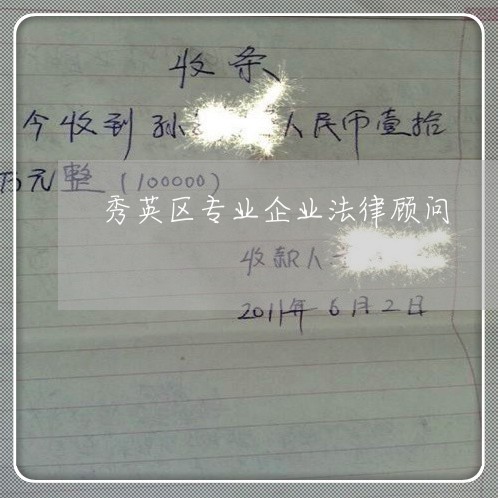 收条
今收到孙 人民币壹拾
万元整(100000)
秀英区专业企业法律顾问
收款人
2011年6月2日